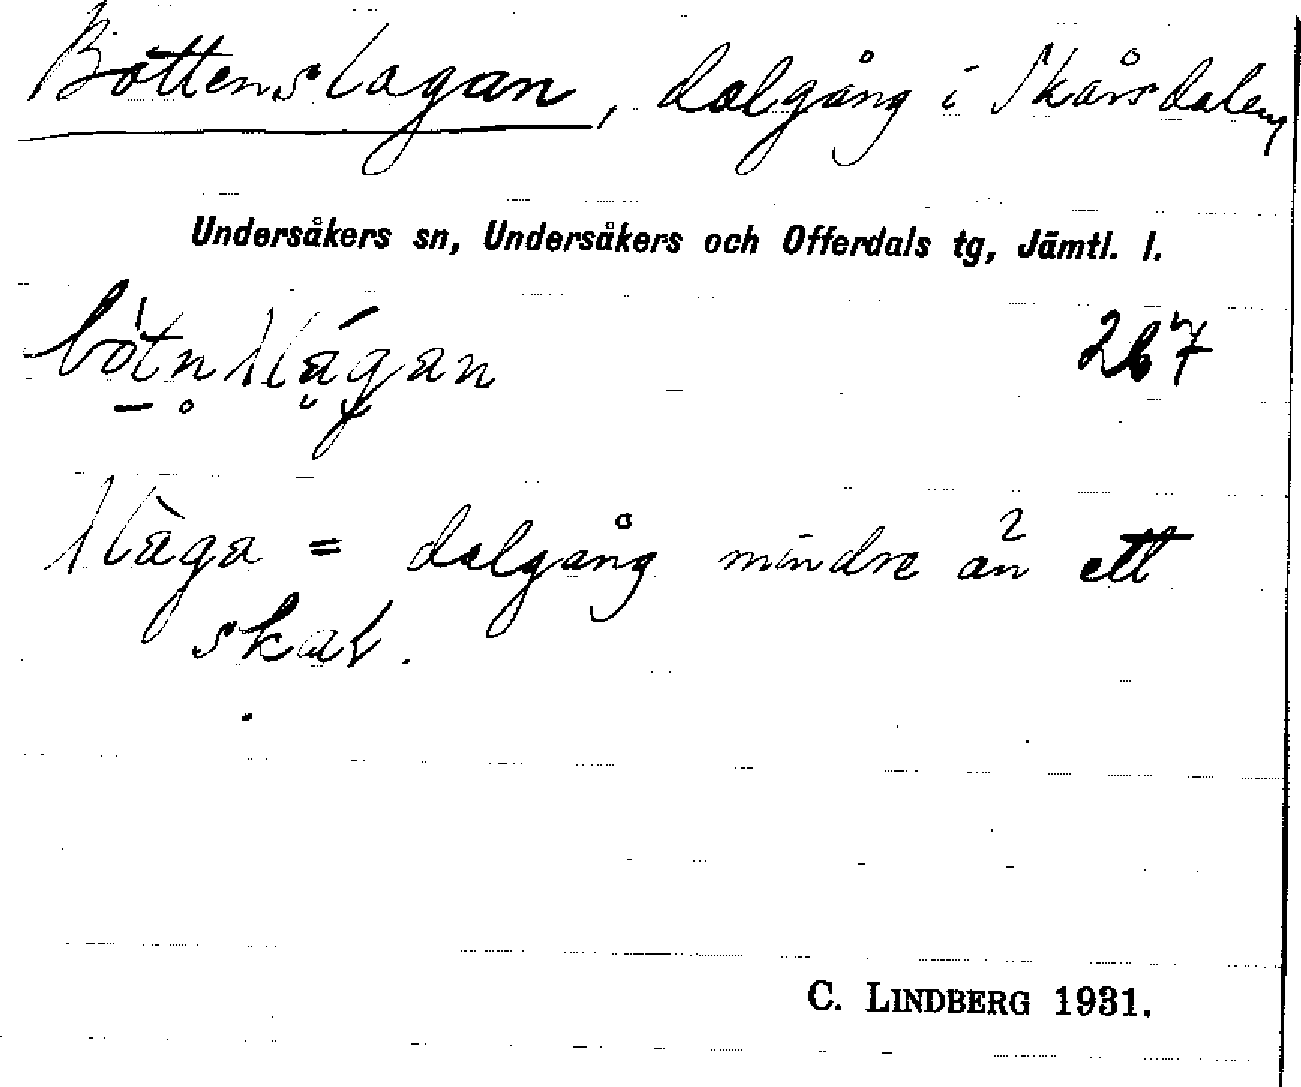 Bottenslagan, dalgång i Skårsdalen
Undersåkers sn, Undersåkers och Offerdals tg, Jämtl. l.
267
slaga = dalgång mindre än ett
skal.
C. LINDBERG 1931.